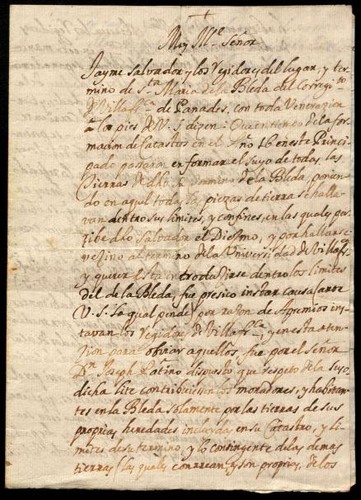 Muy Ill.e Señor
Jayme Salvador y los Regidores del lugar, y ter-
mino de S.ta Maria de la Bleda del Corregim.to
de Villafr.ca de Panades, con toda Veneracion
a los pies de V. S. dizen: Que en tiempo de la for-
macion de Catastros en el Año 16 en este Princi-
pado passaron en formar el suyo de todas las
tierras de dho termino de la Bleda, poniendo
en aquel todas las piezas de tierra se halla-
van dentro sus limites, y confines, en las quales per-
zibe dho Salvador el Diesmo, y por hallarse
vezino al termino de la Universidad de Villafr.ca
y querer esta introduzirse dentro los limites
del de la Bleda, fue presico instar causa ante
V. S. la qual pende por razon de Agravios ins-
tavan los Regidores de Villafr.ca, y en esta aten-
zion para obviar aquellos, fue por el Señor
Dn Joseph Patino dispuesto que respeto de la suso
dicha lite contribuissen los moradores, y habitan-
tes en la Bleda solamente por las tierras de sus
proprias heredades incluidas en su Catastro, y li-
mites de su termino, y lo consiguiente de las demas
tierras las quales conrrean y son proprias, de los